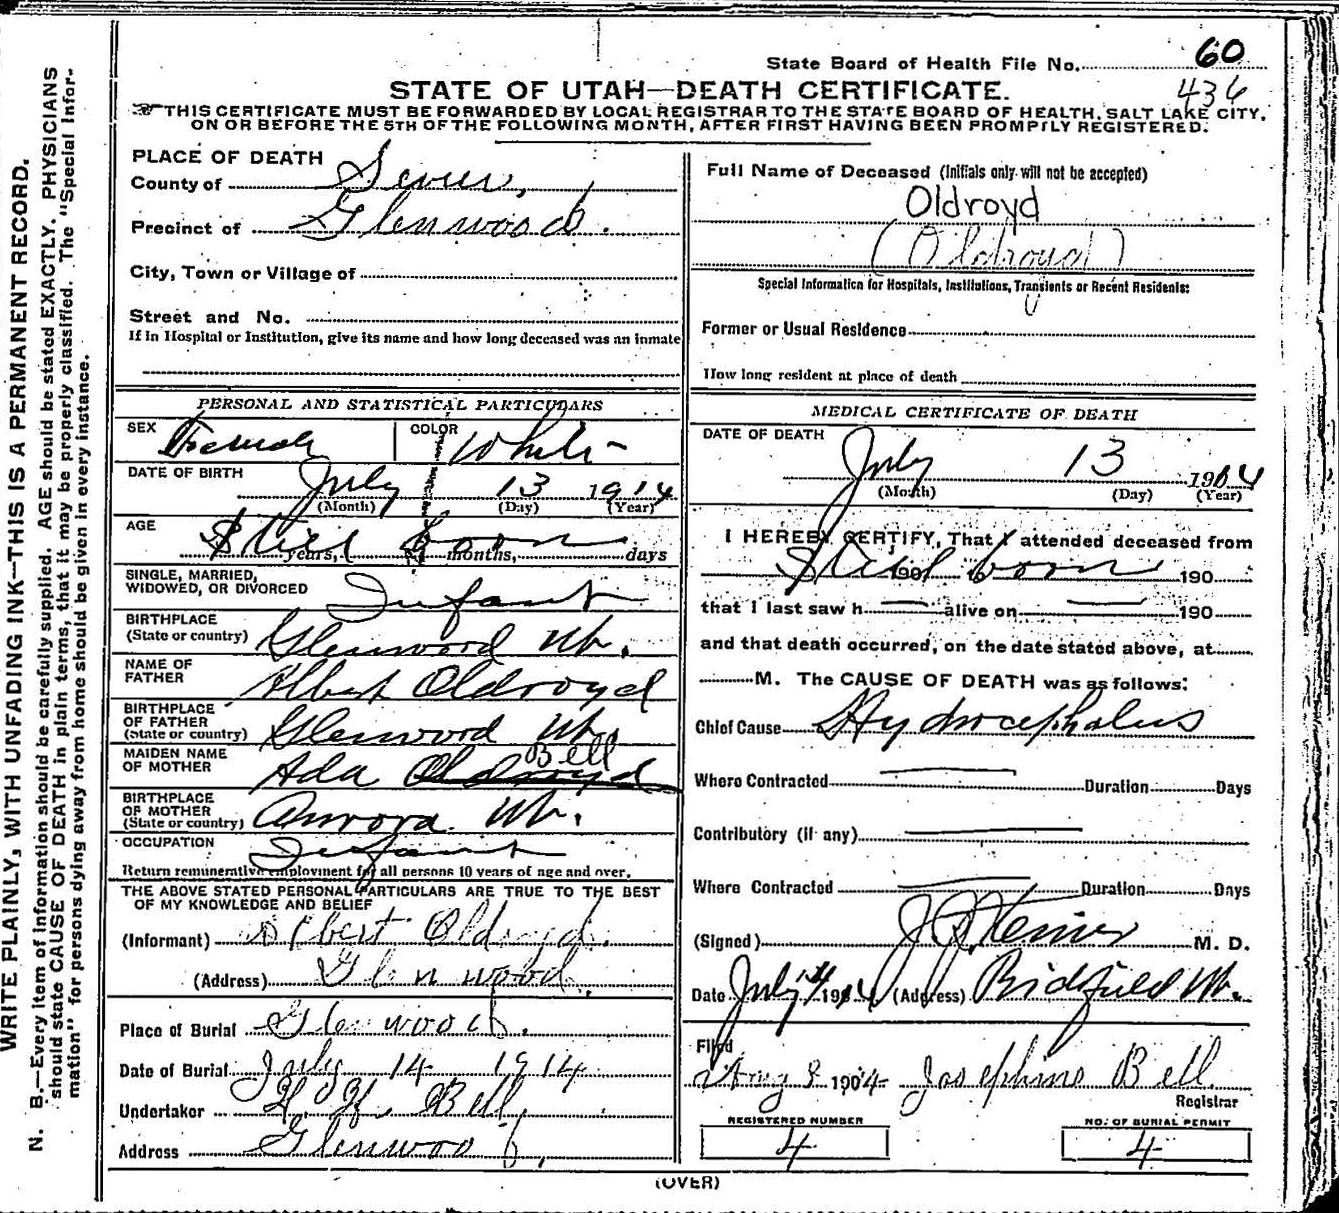 State Board of Health File No. 60
436
STATE OF UTAH—DEATH CERTIFICATE.
THIS CERTIFICATE MUST BE FORWARDED BY LOCAL REGISTRAR TO THE STATE BOARD OF HEALTH, SALT LAKE CITY,
ON OR BEFORE THE 5TH OF THE FOLLOWING MONTH, AFTER FIRST HAVING BEEN PROMPTLY REGISTERED.
WRITE PLAINLY, WITH UNFADING INK—THIS IS A PERMANENT RECORD.
N. B.—Every item of information should be carefully supplied. AGE should be stated EXACTLY. PHYSICIANS
should state CAUSE OF DEATH in plain terms, that it may be properly classified. The "Special Infor-
mation" for persons dying away from home should be given in every instance.
PLACE OF DEATH
County of Sevier,
Precinct of Glenwood.
City, Town or Village of
Street and No.
If in Hospital or Institution, give its name and how long deceased was an inmate
Full Name of Deceased (Initials only will not be accepted)
Oldroyd
(Oldroyd)
Special Information for Hospitals, Institutions, Transients or Recent Residents:
Former or Usual Residence
How long resident at place of death
PERSONAL AND STATISTICAL PARTICULARS
SEX Female COLOR White
DATE OF BIRTH July 13 1914
(Month) (Day) (Year)
AGE Still born
years, months, days
SINGLE, MARRIED,
WIDOWED, OR DIVORCED Infant
BIRTHPLACE
(State or country) Glenwood Ut.
NAME OF
FATHER Albert Oldroyd
BIRTHPLACE
OF FATHER
(State or country) Glenwood Ut.
MAIDEN NAME
OF MOTHER Ada Oldroyd Bell
BIRTHPLACE
OF MOTHER
(State or country) Aurora Ut.
OCCUPATION Infant
Return remunerative employment for all persons 10 years of age and over.
THE ABOVE STATED PERSONAL PARTICULARS ARE TRUE TO THE BEST
OF MY KNOWLEDGE AND BELIEF
(Informant) Albert Oldroyd.
(Address) Glenwood.
Place of Burial Glenwood.
Date of Burial July 14 1914
Undertaker H. H. Bell,
Address Glenwood,
MEDICAL CERTIFICATE OF DEATH
DATE OF DEATH July 13 1914
(Month) (Day) (Year)
I HEREBY CERTIFY, That I attended deceased from
Still born 190 190
that I last saw h alive on 190
and that death occurred, on the date stated above, at
M. The CAUSE OF DEATH was as follows:
Chief Cause Hydrocephalus
Where Contracted Duration Days
Contributory (if any)
Where Contracted Duration Days
(Signed) M. D.
Date July 14 1914 (Address) Richfield Ut.
Filed
Aug 8 1914 Josephine Bell
Registrar
REGISTERED NUMBER
4
NO. OF BURIAL PERMIT
4
(OVER)